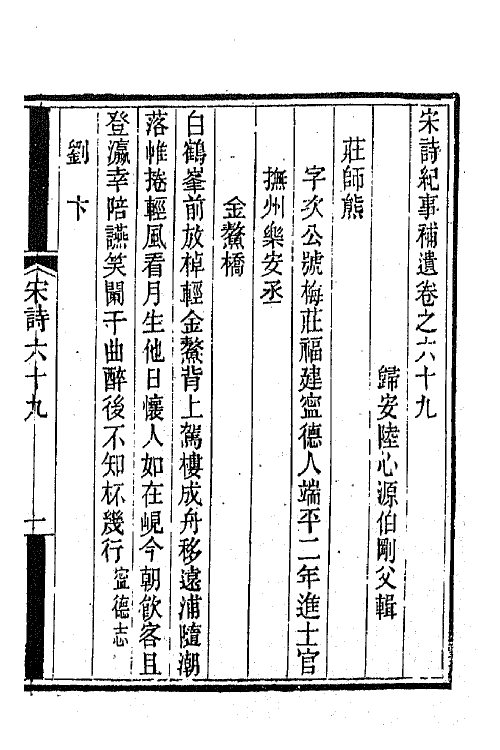 宋詩紀事補遺卷之六十九
歸安陸心源伯剛父輯
莊師熊
字次公號梅莊福建寧德人端平二年進士官
撫州樂安丞
金鰲橋
白鶴峯前放棹輕金鰲背上駕樓成舟移遠浦隨潮
落帷捲輕風看月生他日懷人如在峴今朝飲客且
登瀛幸陪讌笑闌干曲醉後不知杯幾行 寧德志
劉卞
宋詩六十九
一